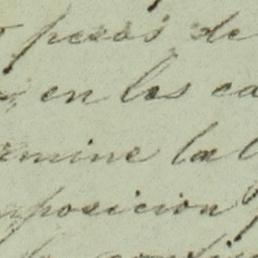 pesos de
en los ca
rmine la l
posicion